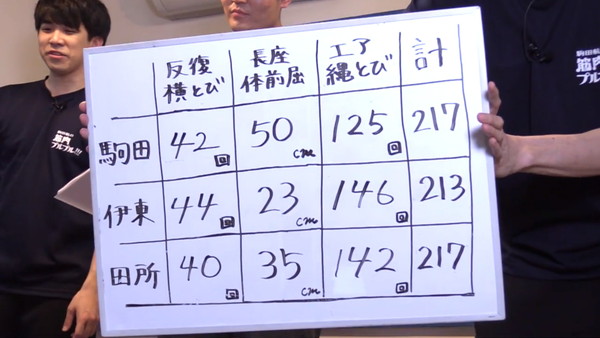 反復
横とび
長座
体前屈
エア
縄とび
計
駒田 42回 50cm 125回 217
伊東 44回 23cm 146回 213
田所 40回 35cm 142回 217
筋肉
プルプル!!!
筋肉
プルプル